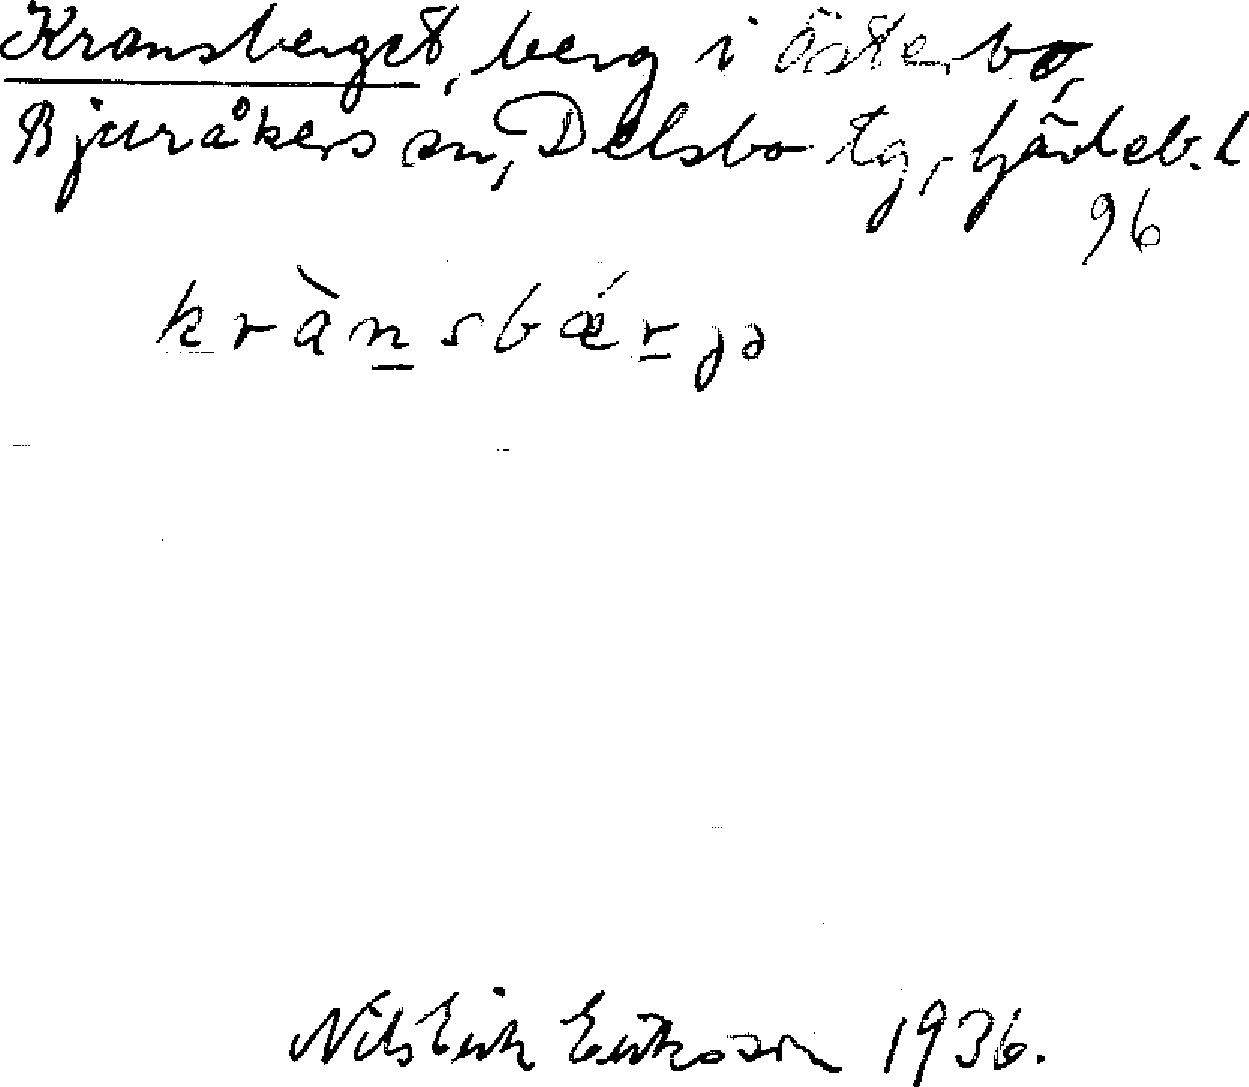 Kransberget, berg i Österbo,
Bjuråkers sn, Delsbo tg, Gävleb. l
96
krànsbǽrjə
Nils Erik Eriksson 1936.